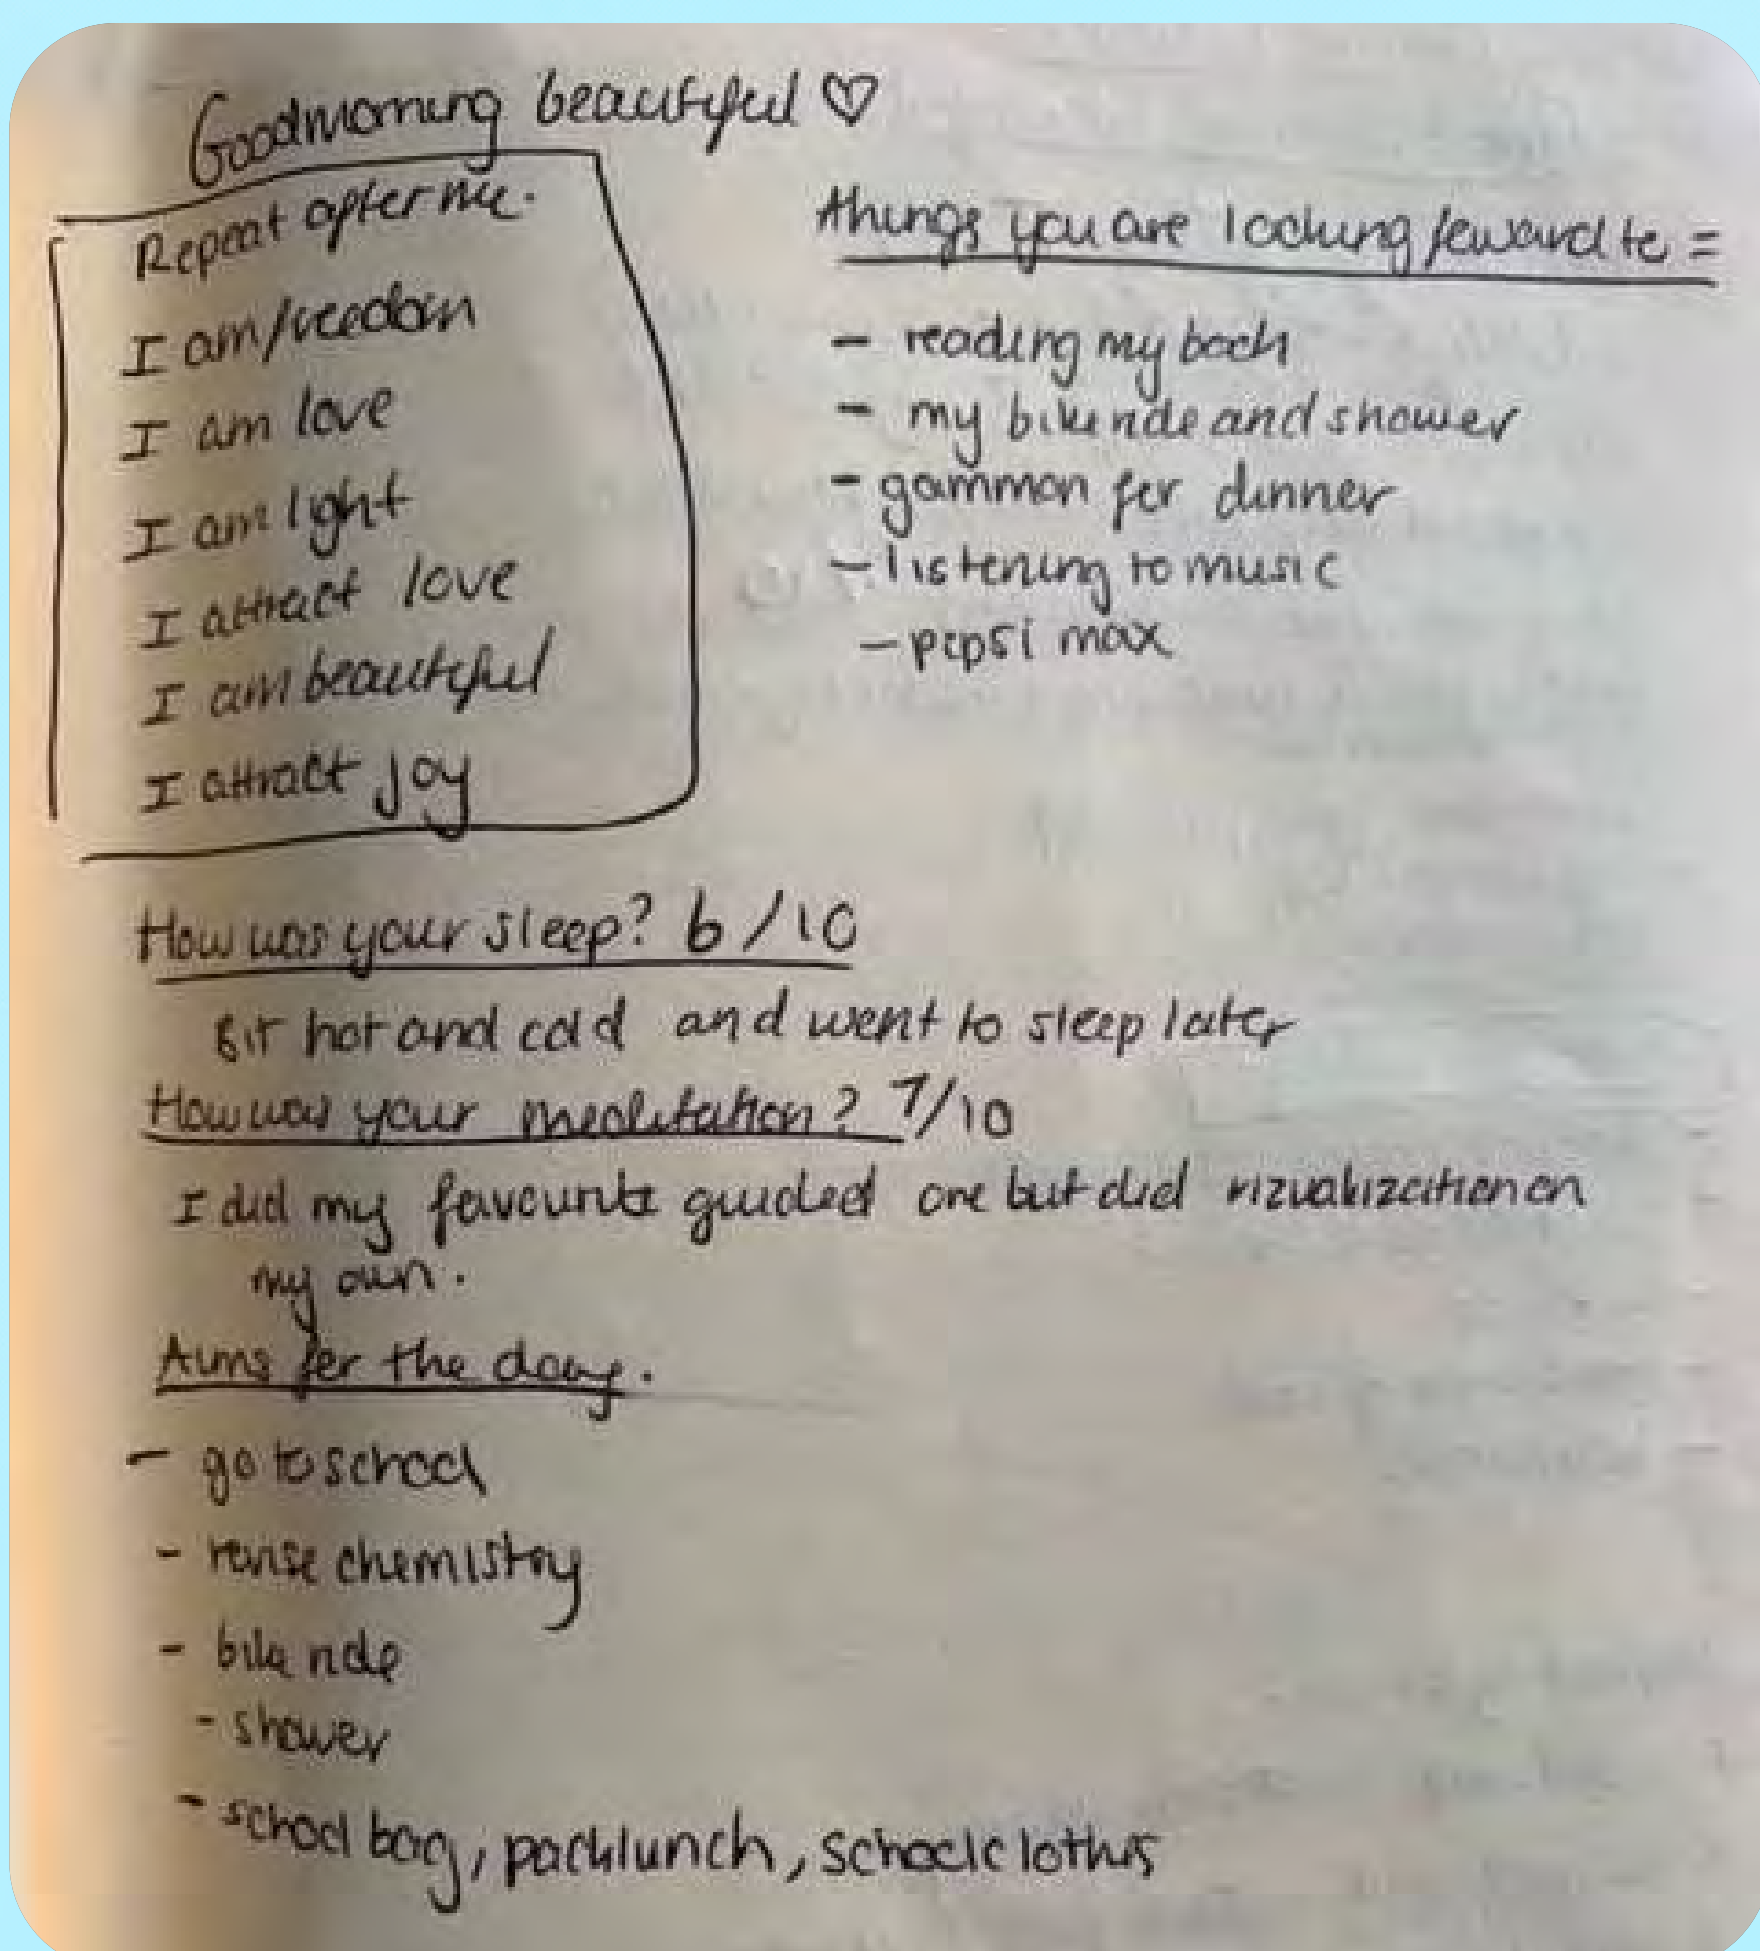 Goodmorning beautiful ♡
Repeat after me.
I am freedom
I am love
I am light
I attract love
I am beautiful
I attract joy
things you are looking forward to =
- reading my book
- my bike ride and shower
- gammon for dinner
- listening to music
- pepsi max
How was your sleep? 6/10
Bit hot and cold and went to sleep later
How was your meditation? 7/10
I did my favourite guided one but did vizualization on
my own.
Aims for the day.
- go to school
- revise chemistry
- bike ride
- shower
- school bag, pack lunch, school clothes